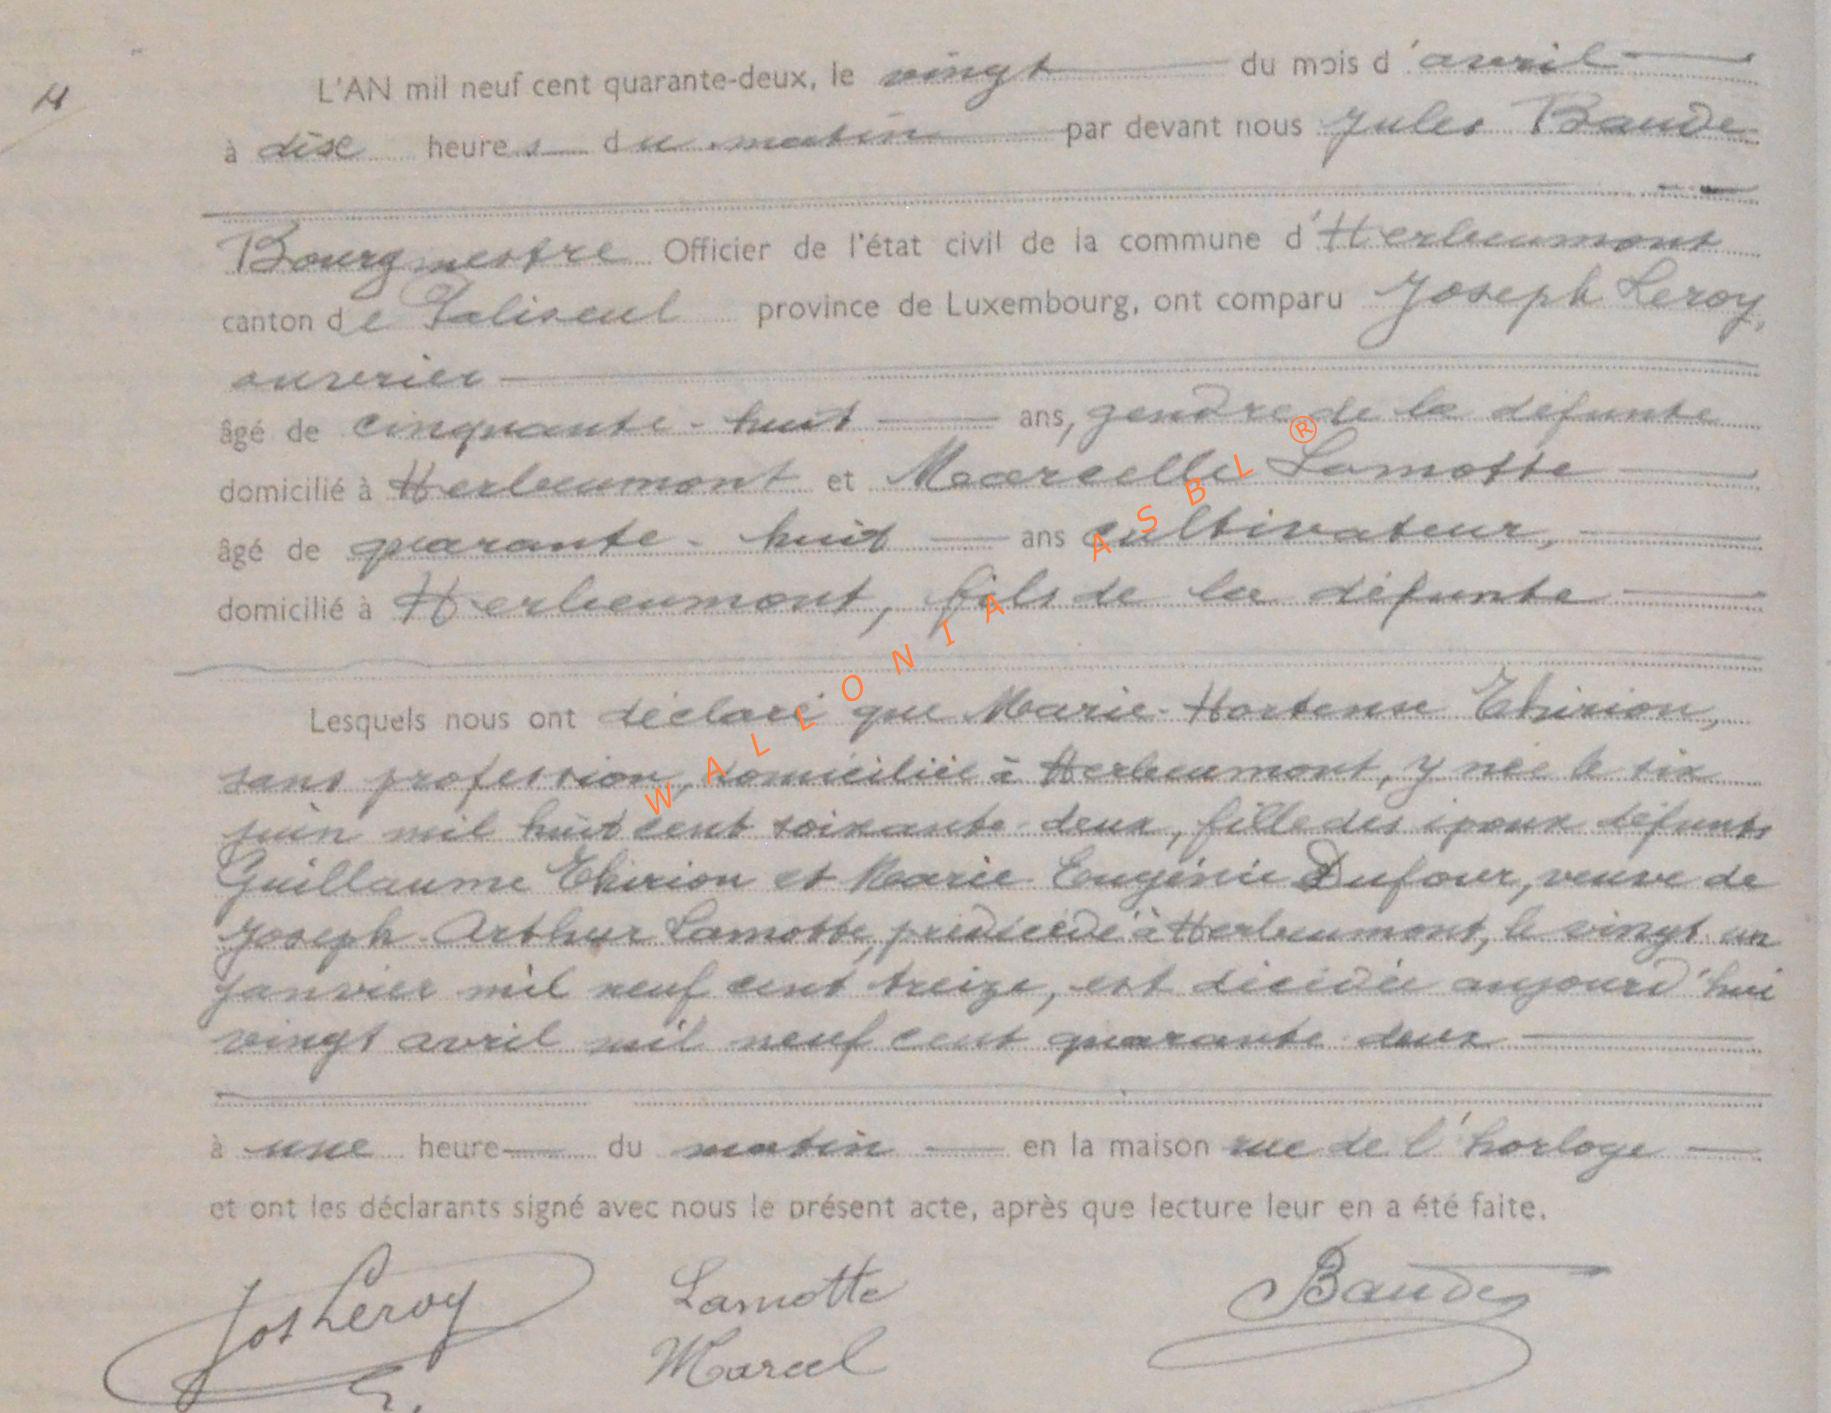 4
L'AN mil neuf cent quarante-deux, le vingt du mois d'avril
à dix heures du matin par devant nous Jules Baude
Bourgmestre Officier de l'état civil de la commune d'Herbeumont
canton de Paliseul province de Luxembourg, ont comparu Joseph Leroy,
ouvrier
âgé de cinquante-huit ans, gendre de la défunte
domicilié à Herbeumont et Marcelle Lamotte
âgé de quarante-huit ans cultivateur,
domicilié à Herbeumont, fils de la défunte
Lesquels nous ont déclaré que Marie-Hortense Thirion,
sans profession, domiciliée à Herbeumont, y née le six
juin mil huit cent soixante-deux, fille des époux défunts
Guillaume Thirion et Marie Eugénie Dufour, veuve de
Joseph Arthur Lamotte, prédécédé à Herbeumont, le vingt un
janvier mil neuf cent treize, est décédée aujourd'hui
vingt avril mil neuf cent quarante deux
à une heure du matin en la maison rue de l'horloge
et ont les déclarants signé avec nous le présent acte, après que lecture leur en a été faite.
Jos Leroy Lamotte Baude
Marcel
WALLONIA ASBL ®